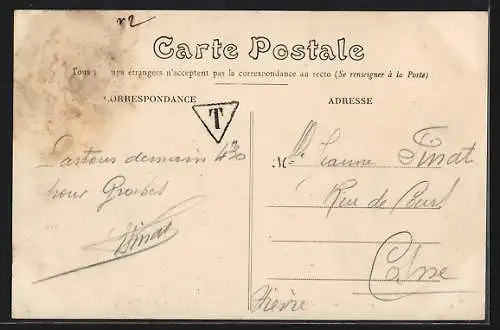 Carte Postale
Tous pays étrangers n'acceptent pas la correspondance au recto (Se renseigner à la Poste)
CORRESPONDANCE
ADRESSE
T
Partons demain 430
pour
Pinat
Mlle Jeanne Pinat
Rue de
Cosne
Nièvre